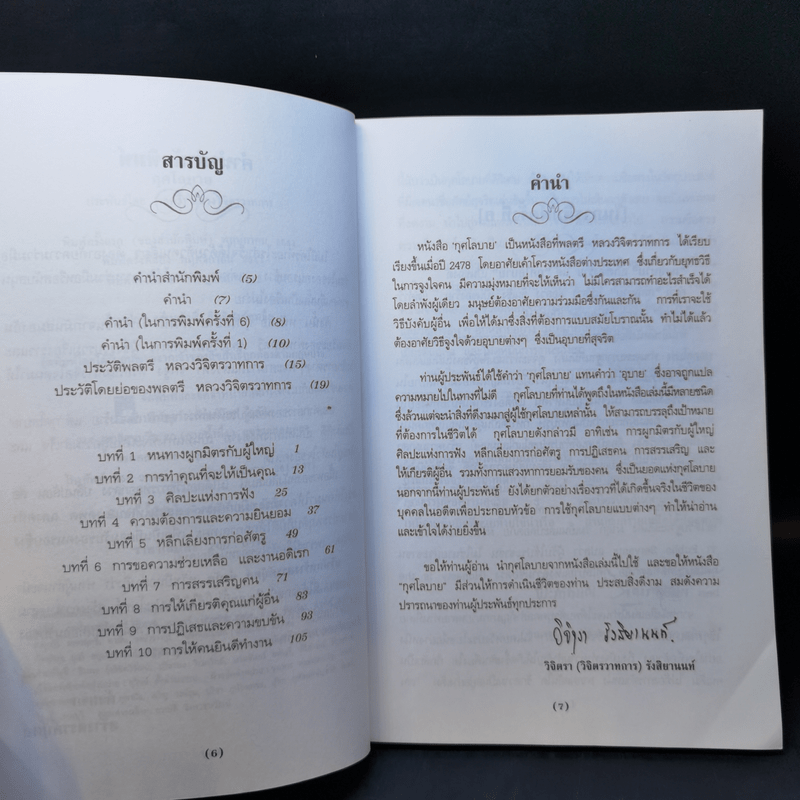 สารบัญ
คำนำสำนักพิมพ์ (5)
คำนำ (7)
คำนำ (ในการพิมพ์ครั้งที่ 6) (8)
คำนำ (ในการพิมพ์ครั้งที่ 1) (10)
ประวัติพลตรี หลวงวิจิตรวาทการ (15)
ประวัติโดยย่อของพลตรี หลวงวิจิตรวาทการ (19)
บทที่ 1 หนทางผูกมิตรกับผู้ใหญ่ 1
บทที่ 2 การทำคุณที่จะให้เป็นคุณ 13
บทที่ 3 ศิลปะแห่งการฟัง 25
บทที่ 4 ความต้องการและความยินยอม 37
บทที่ 5 หลีกเลี่ยงการก่อศัตรู 49
บทที่ 6 การขอความช่วยเหลือ และงานอดิเรก 61
บทที่ 7 การสรรเสริญคน 71
บทที่ 8 การให้เกียรติคุณแก่ผู้อื่น 83
บทที่ 9 การปฏิเสธและความขบขัน 93
บทที่ 10 การให้คนยินดีทำงาน 105
(6)
คำนำ
หนังสือ 'กุศโลบาย' เป็นหนังสือที่พลตรี หลวงวิจิตรวาทการ ได้เรียบ
เรียงขึ้นเมื่อปี 2478 โดยอาศัยเค้าโครงหนังสือต่างประเทศ ซึ่งเกี่ยวกับยุทธวิธี
ในการจูงใจคน มีความมุ่งหมายที่จะให้เห็นว่า ไม่มีใครสามารถทำอะไรสำเร็จได้
โดยลำพังผู้เดียว มนุษย์ต้องอาศัยความร่วมมือซึ่งกันและกัน การที่เราจะใช้
วิธีบังคับผู้อื่น เพื่อให้ได้มาซึ่งสิ่งที่ต้องการแบบสมัยโบราณนั้น ทำไม่ได้แล้ว
ต้องอาศัยวิธีจูงใจด้วยอุบายต่างๆ ซึ่งเป็นอุบายที่สุจริต
ท่านผู้ประพันธ์ได้ใช้คำว่า 'กุศโลบาย' แทนคำว่า 'อุบาย' ซึ่งอาจถูกแปล
ความหมายไปในทางที่ไม่ดี กุศโลบายที่ท่านได้พูดถึงในหนังสือเล่มนี้มีหลายชนิด
ซึ่งล้วนแต่จะนำสิ่งที่ดีงามมาสู่ผู้ใช้กุศโลบายเหล่านั้น ให้สามารถบรรลุถึงเป้าหมาย
ที่ต้องการในชีวิตได้ กุศโลบายดังกล่าวมี อาทิเช่น การผูกมิตรกับผู้ใหญ่
ศิลปะแห่งการฟัง หลีกเลี่ยงการก่อศัตรู การปฏิเสธคน การสรรเสริญ และ
ให้เกียรติผู้อื่น รวมทั้งการแสวงหาการยอมรับของคน ซึ่งเป็นยอดแห่งกุศโลบาย
นอกจากนี้ท่านผู้ประพันธ์ ยังได้ยกตัวอย่างเรื่องราวที่ได้เกิดขึ้นจริงในชีวิตของ
บุคคลในอดีตเพื่อประกอบหัวข้อ การใช้กุศโลบายแบบต่างๆ ทำให้น่าอ่าน
และเข้าใจได้ง่ายยิ่งขึ้น
ขอให้ท่านผู้อ่าน นำกุศโลบายจากหนังสือเล่มนี้ไปใช้ และขอให้หนังสือ
"กุศโลบาย" มีส่วนให้การดำเนินชีวิตของท่าน ประสบสิ่งดีงาม สมดังความ
ปรารถนาของท่านผู้ประพันธ์ทุกประการ
วิจิตรา รังสิยานนท์.
วิจิตรา (วิจิตรวาทการ) รังสิยานนท์
(7)